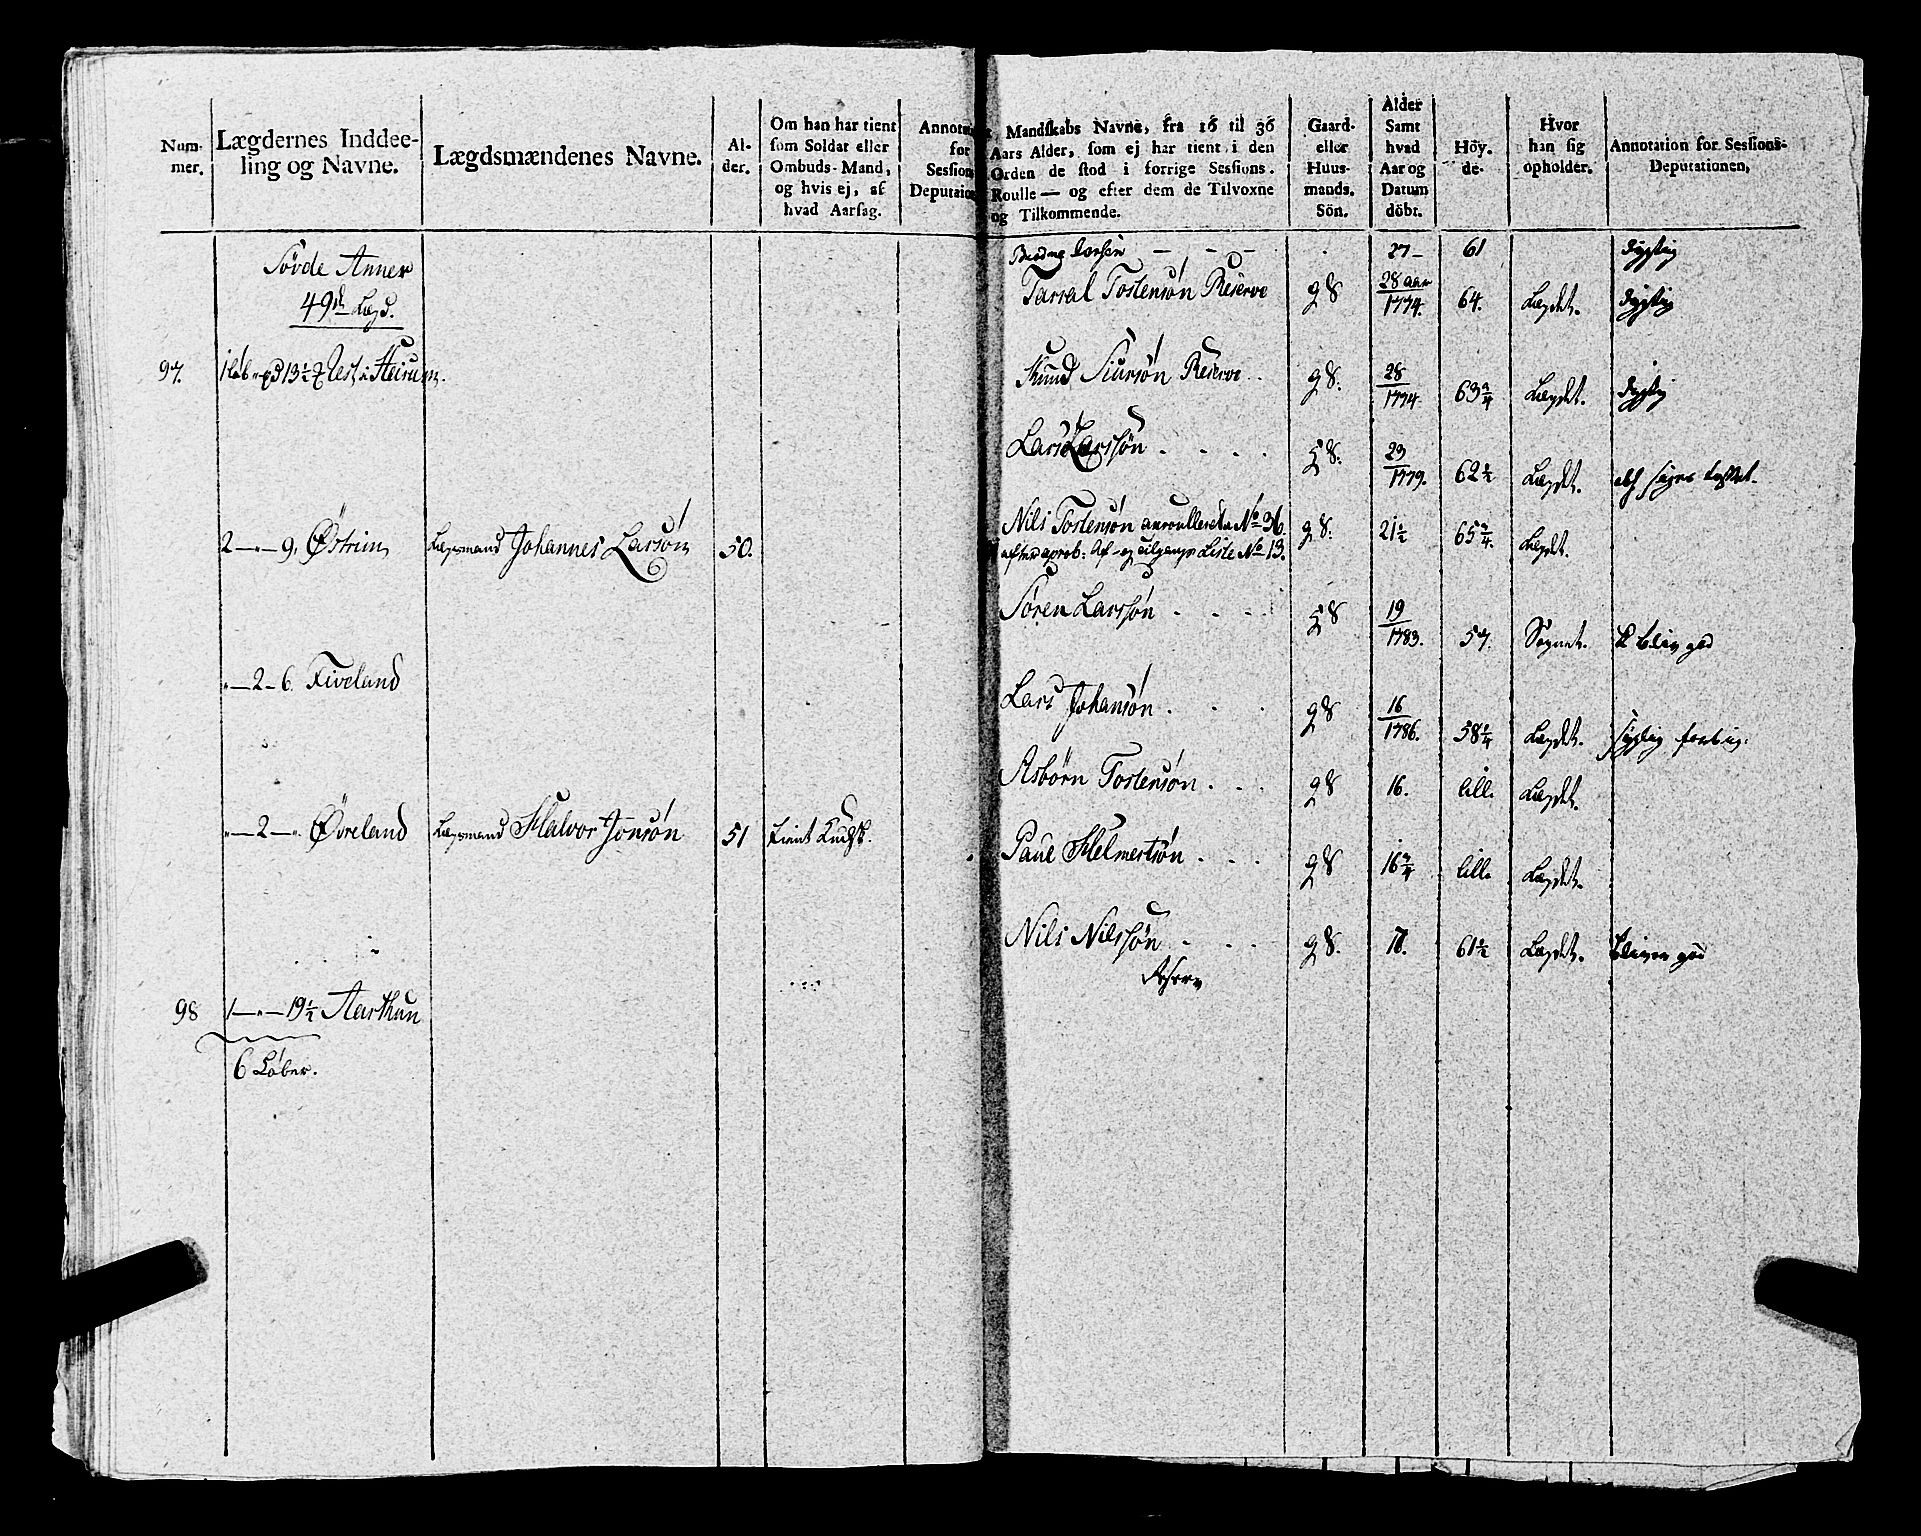 Num-
mer.
Lægdernes Inddee-
ling og Navne.
Lægdsmændenes Navne.
Al-
der.
Om han har tient
som Soldat eller
Ombuds-Mand,
og hvis ej, af
hvad Aarsag.
Annotation
for
Session
Deputation
Søvde Anner
49de Lægd.
97. 1 løb - pd 13½ Heirum.
2 - „ - 9. Østrim Lægsmand Johannes Larsøn 50.
„ - 2 - 6. Fiveland
„ - 2 - „ Øvreland Lægsmand Halvor Jonsøn 51 tient
98 1 - „ - 19½ Aarthun
6 Løber.
Mandskabs Navne, fra 16 til 36
Aars Alder, som ej har tient i den
Orden de stod i forrige Sessions-
Roulle — og efter dem de Tilvoxne
og Tilkommende.
Gaard-
eller
Huus-
mands.
Sön.
Alder
Samt
hvad
Aar og
Datum
döbt.
Höy-
de.
Hvor
han sig
opholder.
Annotation for Sessions-
Deputationen,
27 - 61 dygtig
Tarral Tostensøn Reserve g S 28 aar 1774. 64. Lægdet. dygtig
Knud Siursøn Reserve g S. 28 1774. 63¾ Lægdet. dygtig
Lars Larssøn 23 1779. 62½ Lægdet.
Nils Tostensøn anroulleret No 36. g S. 21½ 65¾. Lægdet.
efter aprob: Af- og tilgangs Liste No 13.
Søren Larssøn 19 1783. 57. Sognet.
Lars Johansøn g S 16 1786. 58¼ Lægdet.
Asbørn Tostensøn g S 16. lill. Lægdet.
Paul Helmertsøn g S 16¾ lill. Lægdet.
Nils Nilssøn g S. 18. 61½ Lægdet.